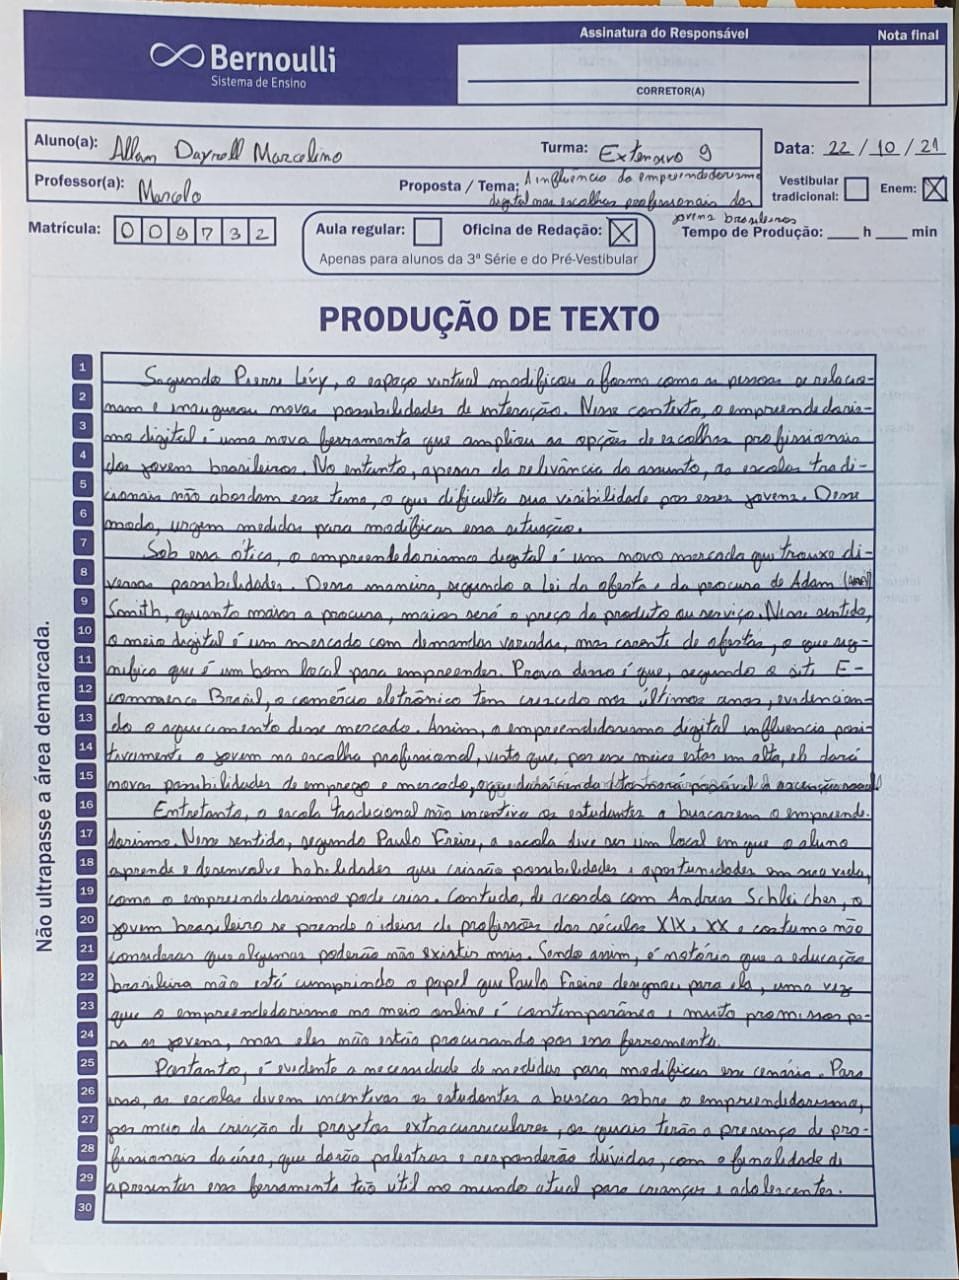 Bernoulli
Sistema de Ensino
Assinatura do Responsável
Nota final
CORRETOR(A)
Aluno(a): Allam Dayrell Marcelino
Turma: Extensivo 9
Data: 22/10/21
Professor(a): Marcelo
Proposta / Tema: A influência do empreendedorismo
digital nas escolhas profissionais dos
jovens brasileiros
Vestibular tradicional:
Enem: X
Matrícula: 009732
Aula regular:
Oficina de Redação: X
Apenas para alunos da 3ª Série e do Pré-Vestibular
Tempo de Produção: ___ h ___ min
PRODUÇÃO DE TEXTO
Não ultrapasse a área demarcada.
1 Segundo Pierre Lévy, o espaço virtual modificou a forma como as pessoas se relacio-
2 nam e inaugurou novas possibilidades de interação. Nesse contexto, o empreendedoris-
3 mo digital é uma nova ferramenta que ampliou as opções de escolhas profissionais
4 dos jovens brasileiros. No entanto, apesar da relevância do assunto, as escolas tradi-
5 cionais não abordam esse tema, o que dificulta sua visibilidade por esses jovens. Desse
6 modo, urgem medidas para modificar essa situação.
7 Sob essa ótica, o empreendedorismo digital é um novo mercado que trouxe di-
8 versas possibilidades. Dessa maneira, segundo a Lei da oferta e da procura de Adam
9 Smith, quanto maior a procura, maior será o preço do produto ou serviço. Nesse sentido,
10 o meio digital é um mercado com demandas variadas, mas carente de ofertas, o que sig-
11 nifica que é um bom local para empreender. Prova disso é que, segundo o site E-
12 commerce Brasil, o comércio eletrônico tem crescido nos últimos anos, evidencian-
13 do o aquecimento desse mercado. Assim, o empreendedorismo digital influencia posi-
14 tivamente o jovem na escolha profissional, visto que, por esse meio estar em alta, ele dará
15 novas possibilidades de emprego e mercado,
16 Entretanto, a escola tradicional não incentiva os estudantes a buscarem o empreende-
17 dorismo. Nesse sentido, segundo Paulo Freire, a escola deve ser um local em que o aluno
18 aprende e desenvolve habilidades que criarão possibilidades e oportunidades em sua vida,
19 como o empreendedorismo pode criar. Contudo, de acordo com Andreas Schleicher, o
20 jovem brasileiro se prende a ideias de profissões dos séculos XIX, XX e costuma não
21 considerar que algumas poderão não existir mais. Sendo assim, é notório que a educação
22 brasileira não está cumprindo o papel que Paulo Freire designou para ela, uma vez
23 que o empreendedorismo no meio online é contemporâneo e muito promissor pa-
24 ra os jovens, mas eles não estão procurando por essa ferramenta.
25 Portanto, é evidente a necessidade de medidas para modificar esse cenário. Para
26 isso, as escolas devem incentivar os estudantes a buscar sobre o empreendedorismo,
27 por meio da criação de projetos extracurriculares, os quais terão a presença de pro-
28 fissionais da área, que darão palestras e responderão dúvidas, com a finalidade de
29 apresentar essa ferramenta tão útil no mundo atual para crianças e adolescentes.
30